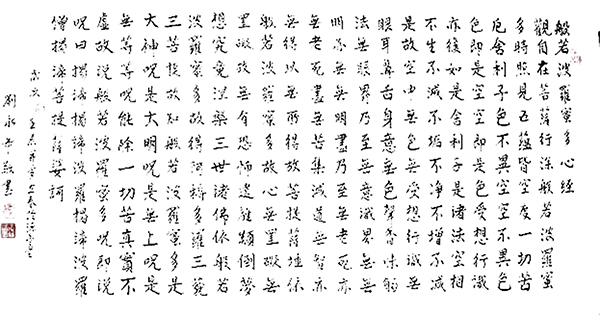 般若波羅蜜多心經
觀自在菩薩行深般若波羅蜜
多時照見五蘊皆空度一切苦
厄舍利子色不異空空不異色
色即是空空即是色受想行識
亦復如是舍利子是諸法空相
不生不滅不垢不淨不增不減
是故空中無色無受想行識無
眼耳鼻舌身意無色聲香味觸
法無眼界乃至無意識界無無
明亦無無明盡乃至無老死亦
無老死盡無苦集滅道無智亦
無得以無所得故菩提薩埵依
般若波羅蜜多故心無罣礙無
罣礙故無有恐怖遠離顛倒夢
想究竟涅槃三世諸佛依般若
波羅蜜多故得阿耨多羅三藐
三菩提故知般若波羅蜜多是
大神呪是大明呪是無上呪是
無等等呪能除一切苦真實不
虛故說般若波羅蜜多呪即說
呪曰揭諦揭諦波羅揭諦波羅
僧揭諦菩提薩婆訶
劉永書